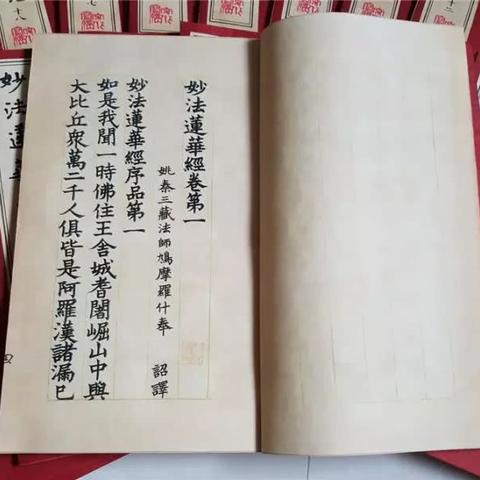 妙法蓮華經卷第一
姚秦三藏法師鳩摩羅什奉 詔譯
妙法蓮華經序品第一
如是我聞一時佛住王舍城耆闍崛山中與
大比丘衆萬二千人俱皆是阿羅漢諸漏已
妙法蓮華